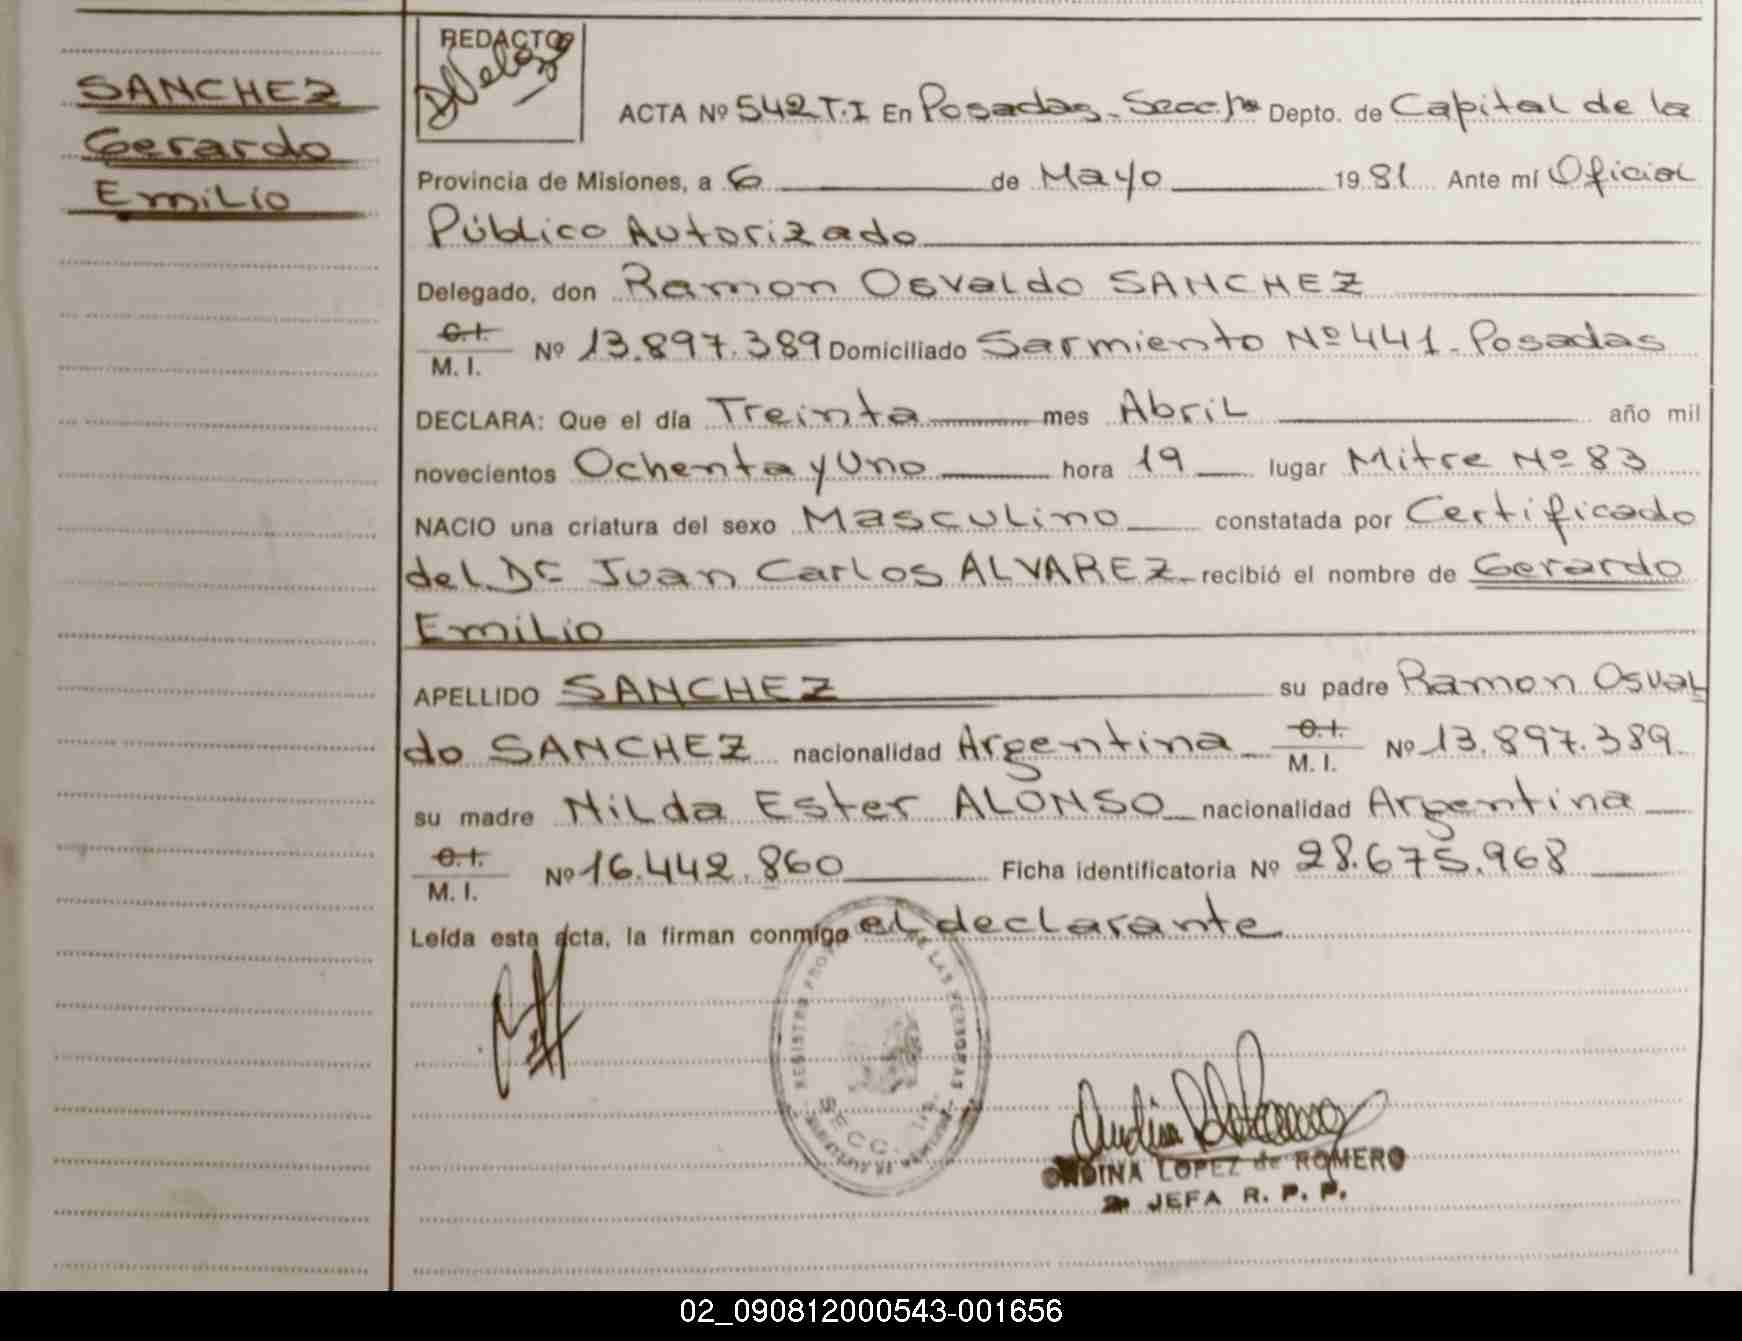 SANCHEZ
Gerardo
Emilio
REDACTOR
ACTA Nº 542 T.I En Posadas - Secc. 1ra Depto. de Capital de la
Provincia de Misiones, a 6 de Mayo 1981 Ante mí Oficial
Público Autorizado
Delegado, don Ramon Osvaldo SANCHEZ
C.I.
M. I. Nº 13.897.389 Domiciliado Sarmiento Nº 441 - Posadas
DECLARA: Que el día Treinta mes Abril año mil
novecientos Ochenta y Uno hora 19 lugar Mitre Nº 83
NACIO una criatura del sexo Masculino constatada por Certificado
del Dr Juan Carlos ALVAREZ recibió el nombre de Gerardo
Emilio
APELLIDO SANCHEZ su padre Ramon Osval
do SANCHEZ nacionalidad Argentina C.I.
M. I. Nº 13.897.389
su madre Nilda Ester ALONSO nacionalidad Argentina
C.I.
M. I. Nº 16.442.860 Ficha identificatoria Nº 28.675.968
Leída esta acta, la firman conmigo el declarante
REGISTRO DE LAS PERSONAS
SECC.
ONDINA LOPEZ de ROMERO
JEFA R. P. P.
02_090812000543-001656